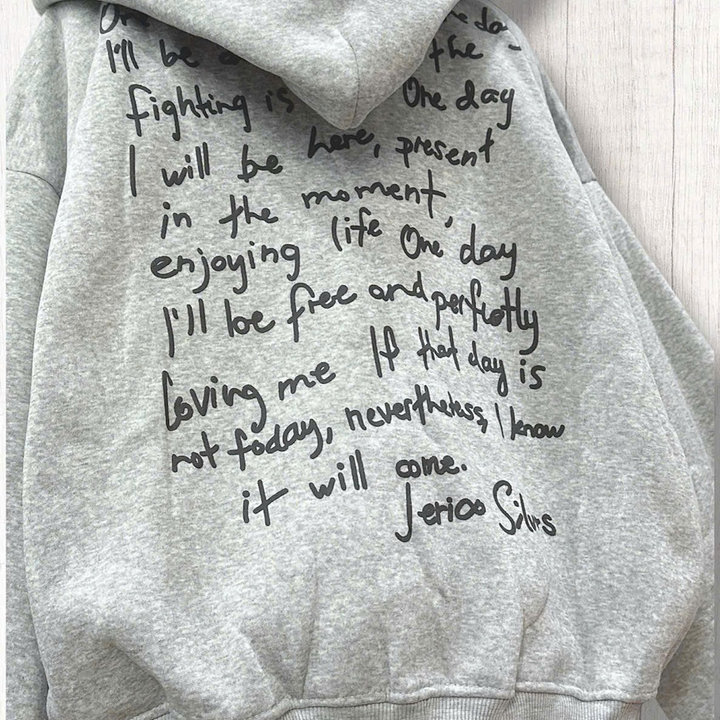 I'll be the
fighting is One day
I will be here, present
in the moment,
enjoying life One day
I'll be free and perfectly
loving me If that day is
not today, nevertheless, I know
it will come.
Jerico Silvrs